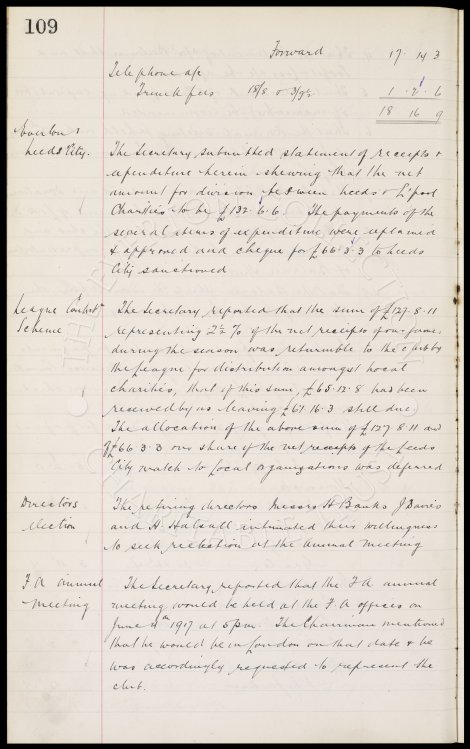 109
Forward 17. 14 3
Telephone a/c
Trunk fees 18/8 & 3/9½ 1 . 2 . 6
18 16 9
Everton v
Leeds City. The Secretary, submitted statement of receipts &
expenditure herein shewing that the net
amount for division between Leeds & L'pool
Charities to be £132. 6. 6. The payments of the
several items of expenditure were explained
& approved and cheque for £66. 3. 3 to Leeds
City sanctioned
League Contribn
Scheme The Secretary reported that the sum of £127. 8. 11
representing 2½ % of the net receipts of our games
during the season was returnable to the club by
the League for distribution amongst local
charities, that of this sum, £65. 12. 8 had been
received by us leaving £61. 16. 3 still due.
The allocation of the above sum of £127 8. 11 and
of £66. 3. 3 our share of the net receipts of the Leeds
City match to local organisations was deferred
Directors
election The retiring directors Messrs H Banks J Davies
and H. Halsall intimated their willingness
to seek reelection at the annual meeting
F A annual
meeting The Secretary reported that the F A annual
meeting would be held at the F. A offices on
June 1917 at 5 pm. The Chairman mentioned
that he would be in London on that date & he
was accordingly requested to represent the
club.